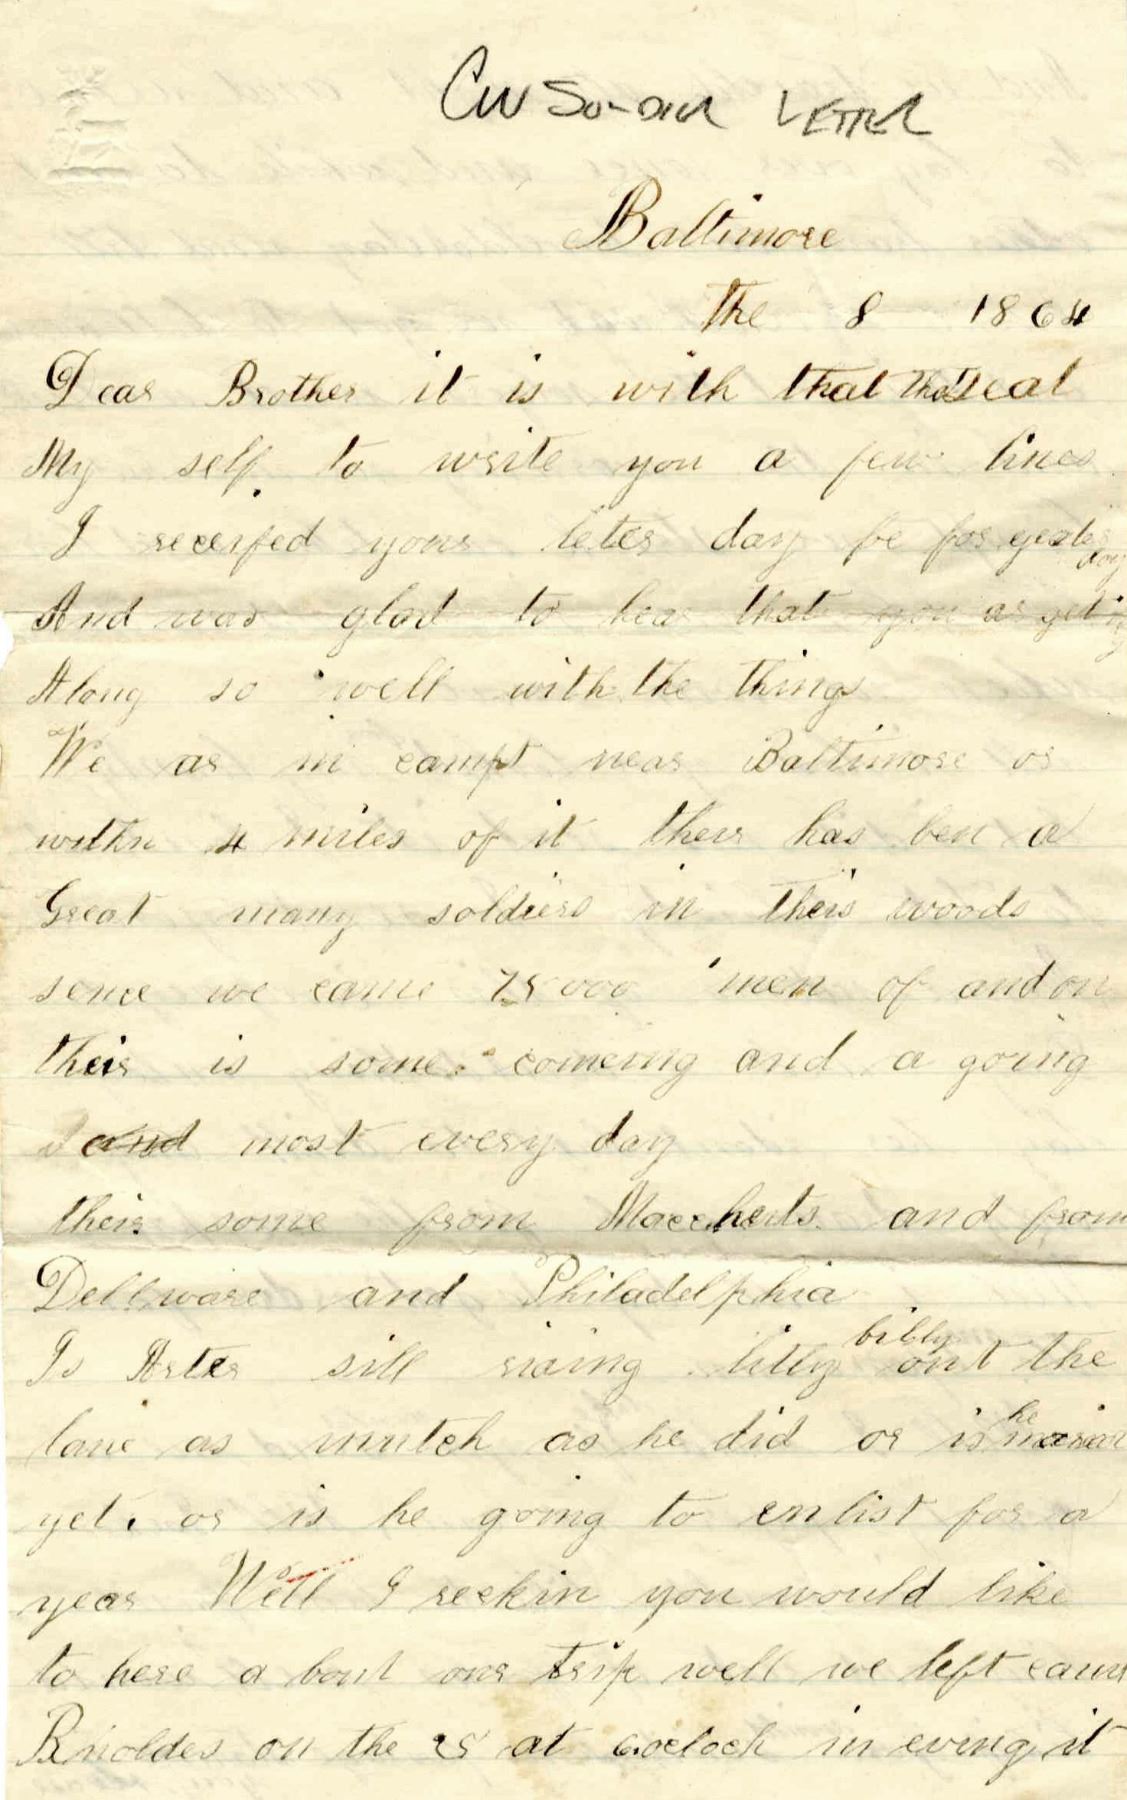 CW SOLDIER LETTER
Baltimore
the 8 1864
Dear Brother it is with that that I seat
My self to write you a few lines
I receifed your leter day be for yester
day
And was glad to hear that you ar geting
Along so well with the things
We ar in campt near Baltimore or
within 4 miles of it their has ben a
Great many soldiers in theis woods
sence we came 75000 men of and on
their is some comeing and a going
and most every day
their some from and from
Dellware and Philadelphia
billy
Is Arter sill riding litly out the
he
lane as mutch as he did or is
yet. or is he going to enlist for a
year Well I reckin you would like
to here a bout our trip well we left camp
on the 25 at 6 oclock in evning it